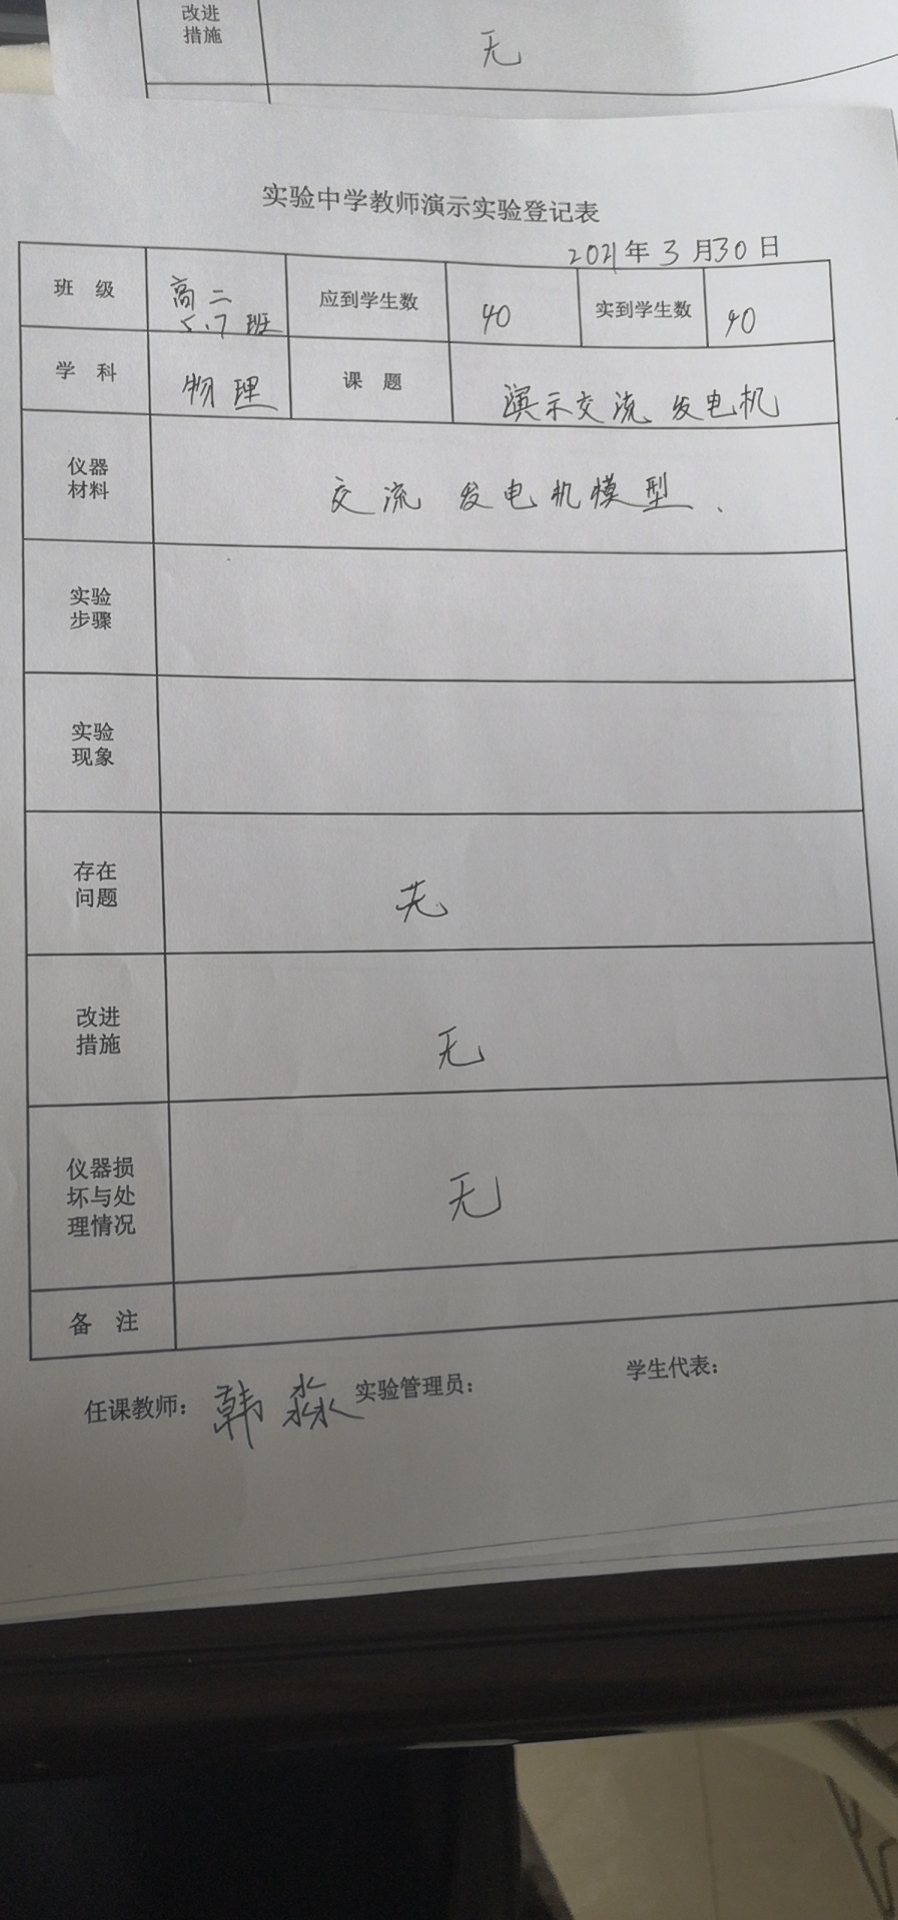 改进
措施
无
实验中学教师演示实验登记表
2021年3月30日
班 级 高二 5.7班 应到学生数 40 实到学生数 40
学 科 物理 课 题 演示交流发电机
仪器
材料
交流发电机模型.
实验
步骤
实验
现象
存在
问题
无
改进
措施
无
仪器损
坏与处
理情况
无
备 注
任课教师: 韩淼 实验管理员: 学生代表: